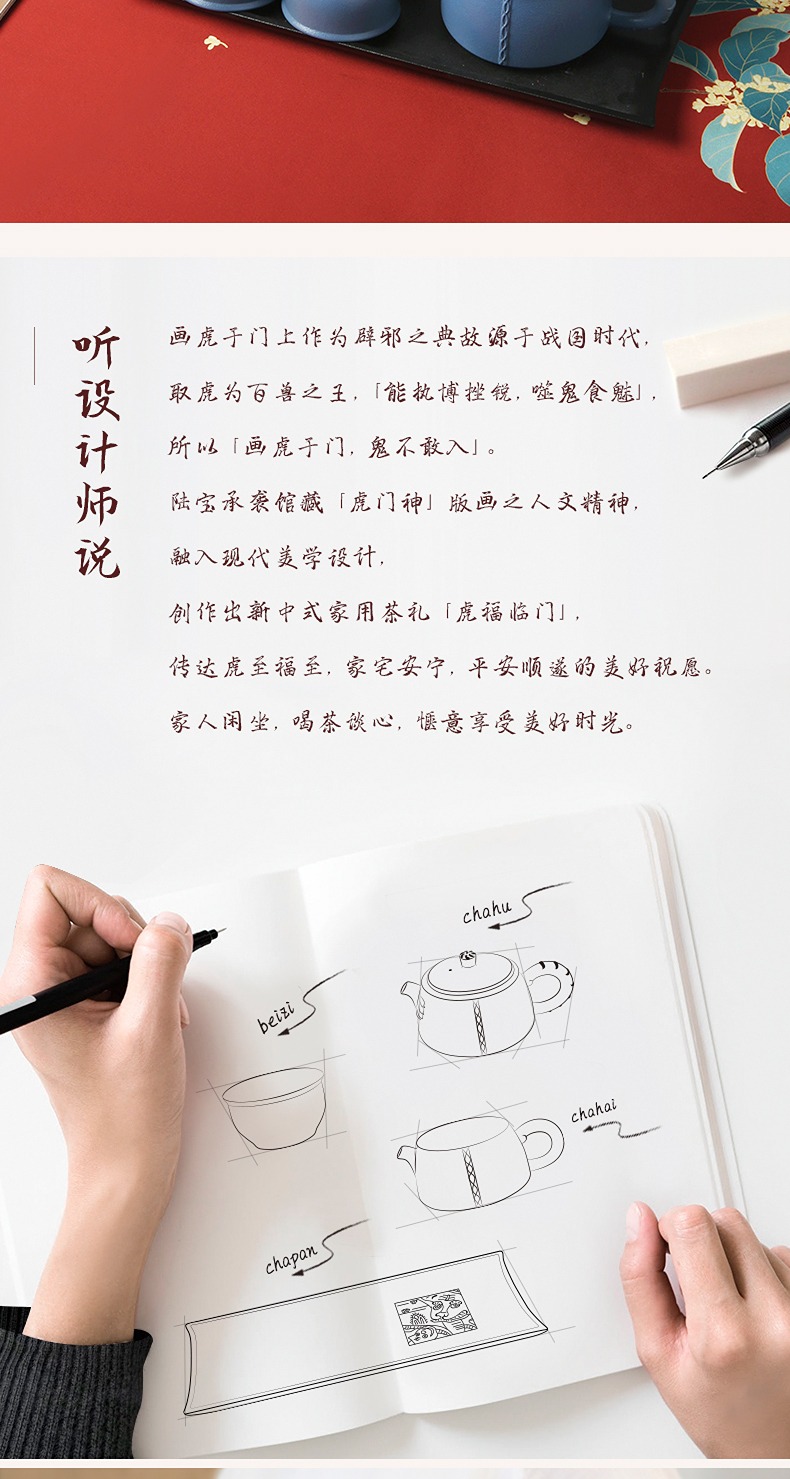 听设计师说
画虎于门上作为辟邪之典故源于战国时代,
取虎为百兽之王,「能执博挫锐,噬鬼食魅」,
所以「画虎于门,鬼不敢入」。
陆宝承袭馆藏「虎门神」版画之人文精神,
融入现代美学设计,
创作出新中式家用茶礼「虎福临门」,
传达虎至福至,家宅安宁,平安顺遂的美好祝愿。
家人闲坐,喝茶谈心,惬意享受美好时光。
chahu
beizi
chahai
chapan